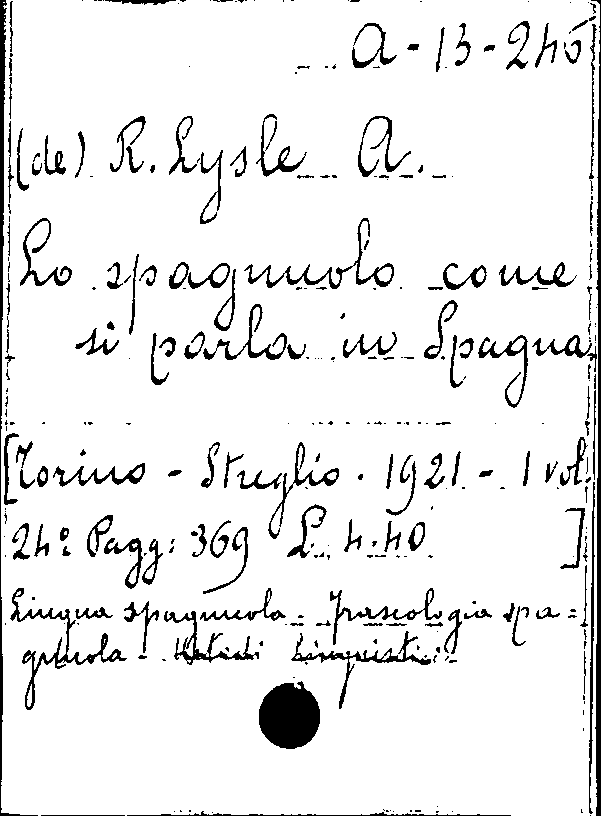 A-13-246
(de) R. Lysle A.
Lo spagnuolo come
si parla in Spagna
[Torino - Streglio . 1921 - 1 vol.
24º Pagg: 369 L. 4.40 ]
Lingua spagnuola - Fraseologia spa=
gnuola - Metodi linguistici -